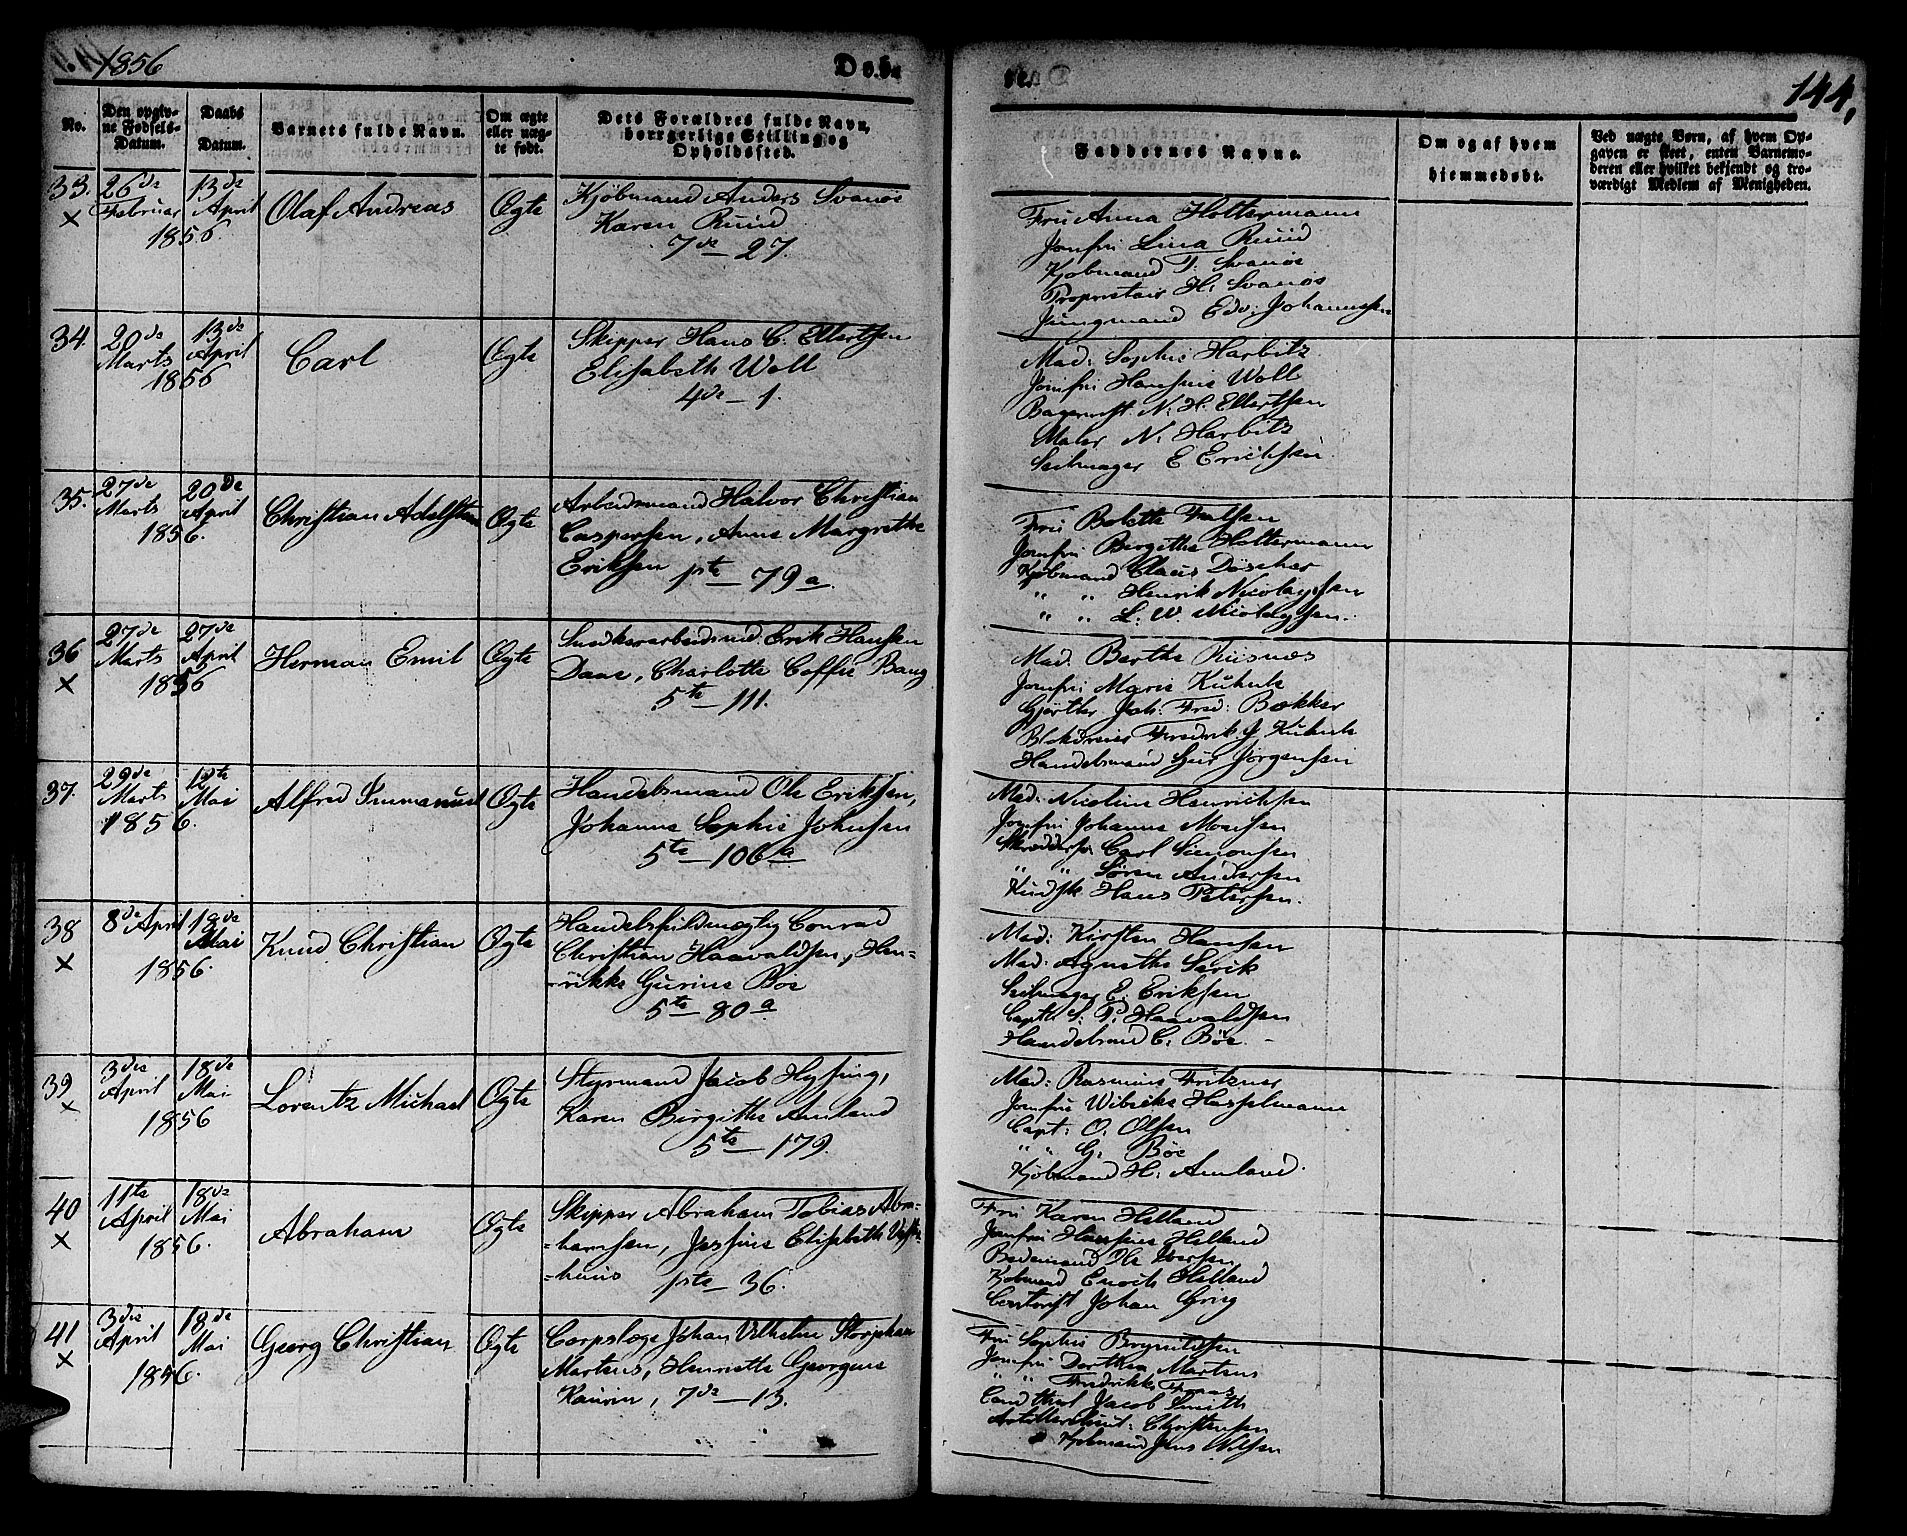 1856
Døb-
te.
144.
No.
Den opgiv-
ne Fødsels-
Datum.
Daabs
Datum.
Barnets fulde Navn.
Om ægte
eller uæg-
te født.
Dets Forældres fulde Navn,
borgerlige Stilling og
Opholdssted.
Faddernes Navne.
Om og af hvem
hjemmedøbt.
Ved uægte Børn, af hvem Op-
gaven er skeet, enten Barnemo-
deren eller hvilket bekjendt og tro-
værdigt Medlem af Menigheden.
33. 26de Februar 13de April 1856. Olaf Andreas Ægte
×
Kjøbmand Anders Svanøe
Karen Ruud
7de — 27.
Fru Anna Holtermann
Jomfru Lina Ruud
Kjøbmand T. Svanøe
Proprietair H. Svanøe
Jungmand Edv. Johannesen
34. 20de Marts 13de April 1856 Carl Ægte
Skipper Hans C. Ellertsen
Elisabeth Woll
4de — 1.
Mad: Sophie Harbitz
Jomfru Hansine Woll
Bagermst. N. H. Ellertsen
Maler N. Harbitz
Seilmager E Erichsen.
35. 27de Marts 20de April 1856. Christian Adolfsteen Ægte
Arbeidsmand Halvor Christian
Caspersen, Anne Margrethe
Eriksen pte — 79a.
Fru Bolette Falsen
Jomfru Bergithe Holtermann
Kjøbmand Claus Døscher
" " Henrik Nicolaysen
" " L. W. Nicolaysen.
36 27de Marts 27de April 1856 Herman Emil Ægte
×
Snedkerarbeidsmd. Erik Hansen
Daae, Charlotte Coffie Bang
5te — 111.
Mad. Berthe Riisnæs
Jomfru Marie Kuhnle
Gjørtler Joh. Fred: Bøkker
Fredrik J Kuhnle
Handelsmand Gur Jørgensen
37. 29de Marts 1ste Mai 1856. Alfred Immanuel Ægte
Handelsmand Ole Eriksen,
Johanne Sophie Johnsen
5te — 106a
Mad: Nicoline Henrichsen
Jomfru Johanne Monsen
Skræddersv. Carl Simonsen
" " Søren Andersen
Kudsk Hans Petersen.
38 8de April 18de Mai 1856. Knud Christian Ægte
×
Handelsfuldmægtig Conrad
Christian Haavaldsen, Hen-
-rikke Gurine Bøe
5te — 80a
Mad: Kirsten Hansen
Mad: Agnethe Lerik
Seilmager E. Eriksen
Capt. S. P. Haavaldsen
Handelsmd C. Bøe. -
39 3die April 18de Mai 1856 Lorentz Michael Ægte
×
Styrmand Jacob Hysing,
Karen Birgithe Amland
5te — 179.
Mad: Rasmine Fritzner
Jomfru Wibeke Hasselmann
Capt: O. Olsen
" " G. Bøe
Kjøbmand H. Amland.
40 11te April 18de Mai 1856. Abraham Ægte
×
Skipper Abraham Tobias Abra-
-hamsen, Josfine Elisabeth Vest-
-huus pte — 36.
Fru Karen Helland
Jomfru Hansine Helland
Bedemand Ole Iversen
Kjøbmand Enoch Helland
Johan Grieg
41 3die April 18de Mai 1856. Georg Christian Ægte
×
Corpslæge Johan Vilhelm Storjohan
Martens, Henriette Georgine
Kaurin, 7de — 13.
Fru Sophie Brynildsen
Jomfru Dorthea Martens
" " Fredrikke
Cand theol Jacob Smith
Artillerilieut: Christensen
Kjøbmand Jens Nilsen